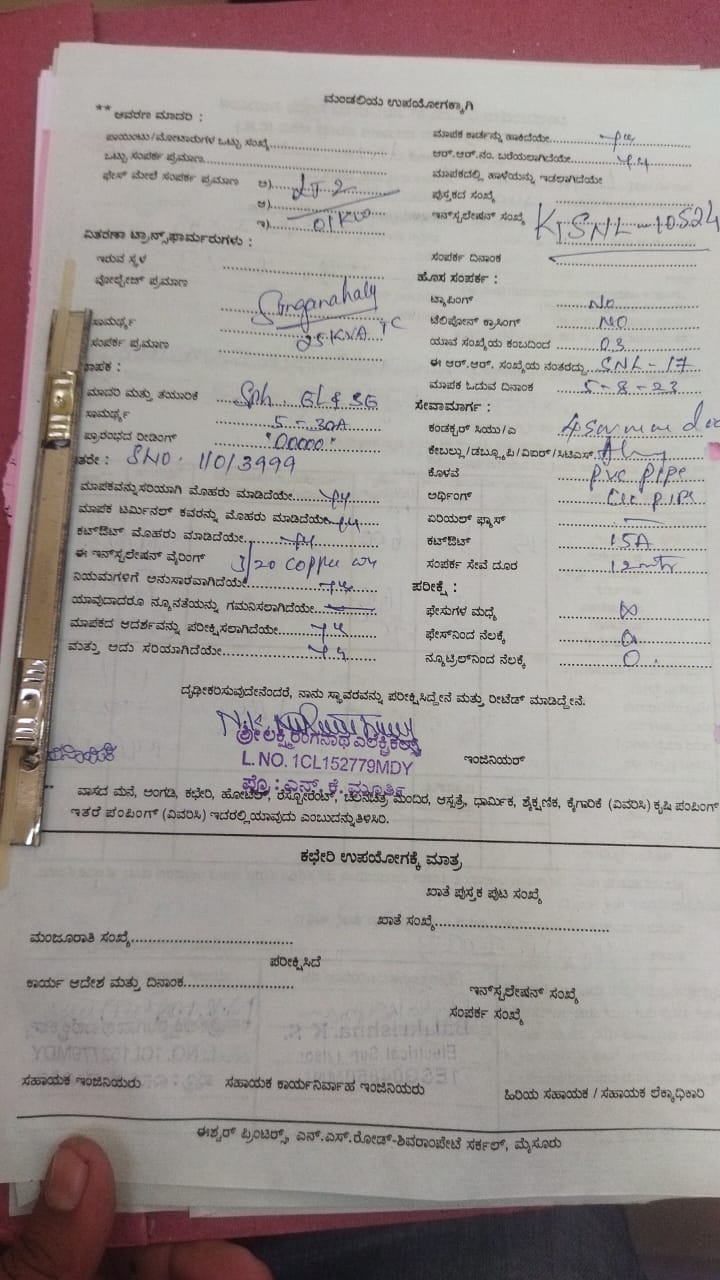 ಮಂಡಲಿಯ ಉಪಯೋಗಕ್ಕಾಗಿ
** ಆವರಣ ಮಾದರಿ :
ಪಾಯಿಂಟು/ಮೋಟಾರುಗಳ ಒಟ್ಟು ಸಂಖ್ಯೆ
ಒಟ್ಟು ಸಂಪರ್ಕ ಪ್ರಮಾಣ
ಫೇಸ್ ಮೇಲೆ ಸಂಪರ್ಕ ಪ್ರಮಾಣ ಅ) LT-2
ಆ)
ಇ) 01KW
ವಿತರಣಾ ಟ್ರಾನ್ಸ್‌ಫಾರ್ಮರುಗಳು :
ಇರುವ ಸ್ಥಳ
ವೋಲ್ಟೇಜ್ ಪ್ರಮಾಣ Singanahaly
ಸಾಮರ್ಥ್ಯ 25 KVA TC
ಸಂಪರ್ಕ ಪ್ರಮಾಣ
ಮಾಪಕ :
ಮಾದರಿ ಮತ್ತು ತಯಾರಿಕೆ Sph GL & SG
ಸಾಮರ್ಥ್ಯ 5-30A
ಪ್ರಾರಂಭದ ರೀಡಿಂಗ್ "00000"
ಇತರೇ : SNO. 11013999
ಮಾಪಕವನ್ನು ಸರಿಯಾಗಿ ಮೊಹರು ಮಾಡಿದೆಯೇ
ಮಾಪಕ ಟರ್ಮಿನಲ್ ಕವರನ್ನು ಮೊಹರು ಮಾಡಿದೆಯೇ
ಕಟ್‌ಔಟ್ ಮೊಹರು ಮಾಡಿದೆಯೇ
ಈ ಇನ್‌ಸ್ಟಲೇಷನ್ ವೈರಿಂಗ್ 3/20 copper
ನಿಯಮಗಳಿಗೆ ಅನುಸಾರವಾಗಿದೆಯೇ
ಯಾವುದಾದರೂ ನ್ಯೂನತೆಯನ್ನು ಗಮನಿಸಲಾಗಿದೆಯೇ
ಮಾಪಕದ ಆದರ್ಶವನ್ನು ಪರೀಕ್ಷಿಸಲಾಗಿದೆಯೇ
ಮತ್ತು ಅದು ಸರಿಯಾಗಿದೆಯೇ
ಮಾಪಕ ಕಾರ್ಡನ್ನು ಹಾಕಿದೆಯೇ
ಆರ್.ಆರ್.ನಂ. ಬರೆಯಲಾಗಿದೆಯೇ
ಮಾಪಕದಲ್ಲಿ ಹಾಳೆಯನ್ನು ಇಡಲಾಗಿದೆಯೇ
ಪುಸ್ತಕದ ಸಂಖ್ಯೆ
ಇನ್‌ಸ್ಟಲೇಷನ್ ಸಂಖ್ಯೆ KJSNL-10524
ಸಂಪರ್ಕ ದಿನಾಂಕ
ಹೊಸ ಸಂಪರ್ಕ :
ಟ್ಯಾಪಿಂಗ್ NO
ಟೆಲಿಫೋನ್ ಕ್ರಾಸಿಂಗ್ NO
ಯಾವ ಸಂಖ್ಯೆಯ ಕಂಬದಿಂದ 03
ಈ ಆರ್.ಆರ್. ಸಂಖ್ಯೆಯ ನಂತರದ್ದು SNL-17
ಮಾಪಕ ಓದುವ ದಿನಾಂಕ 5-8-23
ಸೇವಾಮಾರ್ಗ :
ಕಂಡಕ್ಟರ್ ಸಿಯು/ಎ
ಕೇಬಲ್ಲು/ಡಬ್ಲ್ಯೂಪಿ/ವಿಐಆರ್/ಸಿಟಿಎಸ್
ಕೊಳವೆ PVC PIPE
ಅರ್ಥಿಂಗ್ PIPE
ಏರಿಯಲ್ ಫ್ಯೂಸ್ —
ಕಟ್‌ಔಟ್ 15A
ಸಂಪರ್ಕ ಸೇವೆ ದೂರ 12mtr
ಪರೀಕ್ಷೆ :
ಫೇಸುಗಳ ಮಧ್ಯೆ ∞
ಫೇಸ್‌ನಿಂದ ನೆಲಕ್ಕೆ
ನ್ಯೂಟ್ರಲ್‌ನಿಂದ ನೆಲಕ್ಕೆ 0.
ದೃಢೀಕರಿಸುವುದೇನೆಂದರೆ, ನಾನು ಸ್ಥಾವರವನ್ನು ಪರೀಕ್ಷಿಸಿದ್ದೇನೆ ಮತ್ತು ರೀಟೆಡ್ ಮಾಡಿದ್ದೇನೆ.
ಶ್ರೀ ಲಕ್ಷ್ಮಿ ರಂಗನಾಥ ಎಲೆಕ್ಟ್ರಿಕಲ್ಸ್
L.NO. 1CL152779MDY
ಪ್ರೊ : ಎನ್. ಕೆ. ಮೂರ್ತಿ
ಇಂಜಿನಿಯರ್
** ವಾಸದ ಮನೆ, ಅಂಗಡಿ, ಕಛೇರಿ, ಹೋಟೆಲ್, ರೆಸ್ಟೋರೆಂಟ್, ಚಲನಚಿತ್ರ ಮಂದಿರ, ಆಸ್ಪತ್ರೆ, ಧಾರ್ಮಿಕ, ಶೈಕ್ಷಣಿಕ, ಕೈಗಾರಿಕೆ (ವಿವರಿಸಿ) ಕೃಷಿ ಪಂಪಿಂಗ್
ಇತರೆ ಪಂಪಿಂಗ್ (ವಿವರಿಸಿ) ಇದರಲ್ಲಿ ಯಾವುದು ಎಂಬುದನ್ನು ತಿಳಿಸಿರಿ.
ಕಛೇರಿ ಉಪಯೋಗಕ್ಕೆ ಮಾತ್ರ
ಖಾತೆ ಪುಸ್ತಕ ಪುಟ ಸಂಖ್ಯೆ
ಖಾತೆ ಸಂಖ್ಯೆ
ಮಂಜೂರಾತಿ ಸಂಖ್ಯೆ
ಪರೀಕ್ಷಿಸಿದೆ
ಕಾರ್ಯ ಆದೇಶ ಮತ್ತು ದಿನಾಂಕ
ಇನ್‌ಸ್ಟಲೇಷನ್ ಸಂಖ್ಯೆ
ಸಂಪರ್ಕ ಸಂಖ್ಯೆ
ಸಹಾಯಕ ಇಂಜಿನಿಯರು ಸಹಾಯಕ ಕಾರ್ಯನಿರ್ವಾಹ ಇಂಜಿನಿಯರು ಹಿರಿಯ ಸಹಾಯಕ / ಸಹಾಯಕ ಲೆಕ್ಕಾಧಿಕಾರಿ
ಈಶ್ವರ್ ಪ್ರಿಂಟರ್ಸ್, ಎನ್.ಎಸ್.ರೋಡ್-ಶಿವರಾಂಪೇಟೆ ಸರ್ಕಲ್, ಮೈಸೂರು